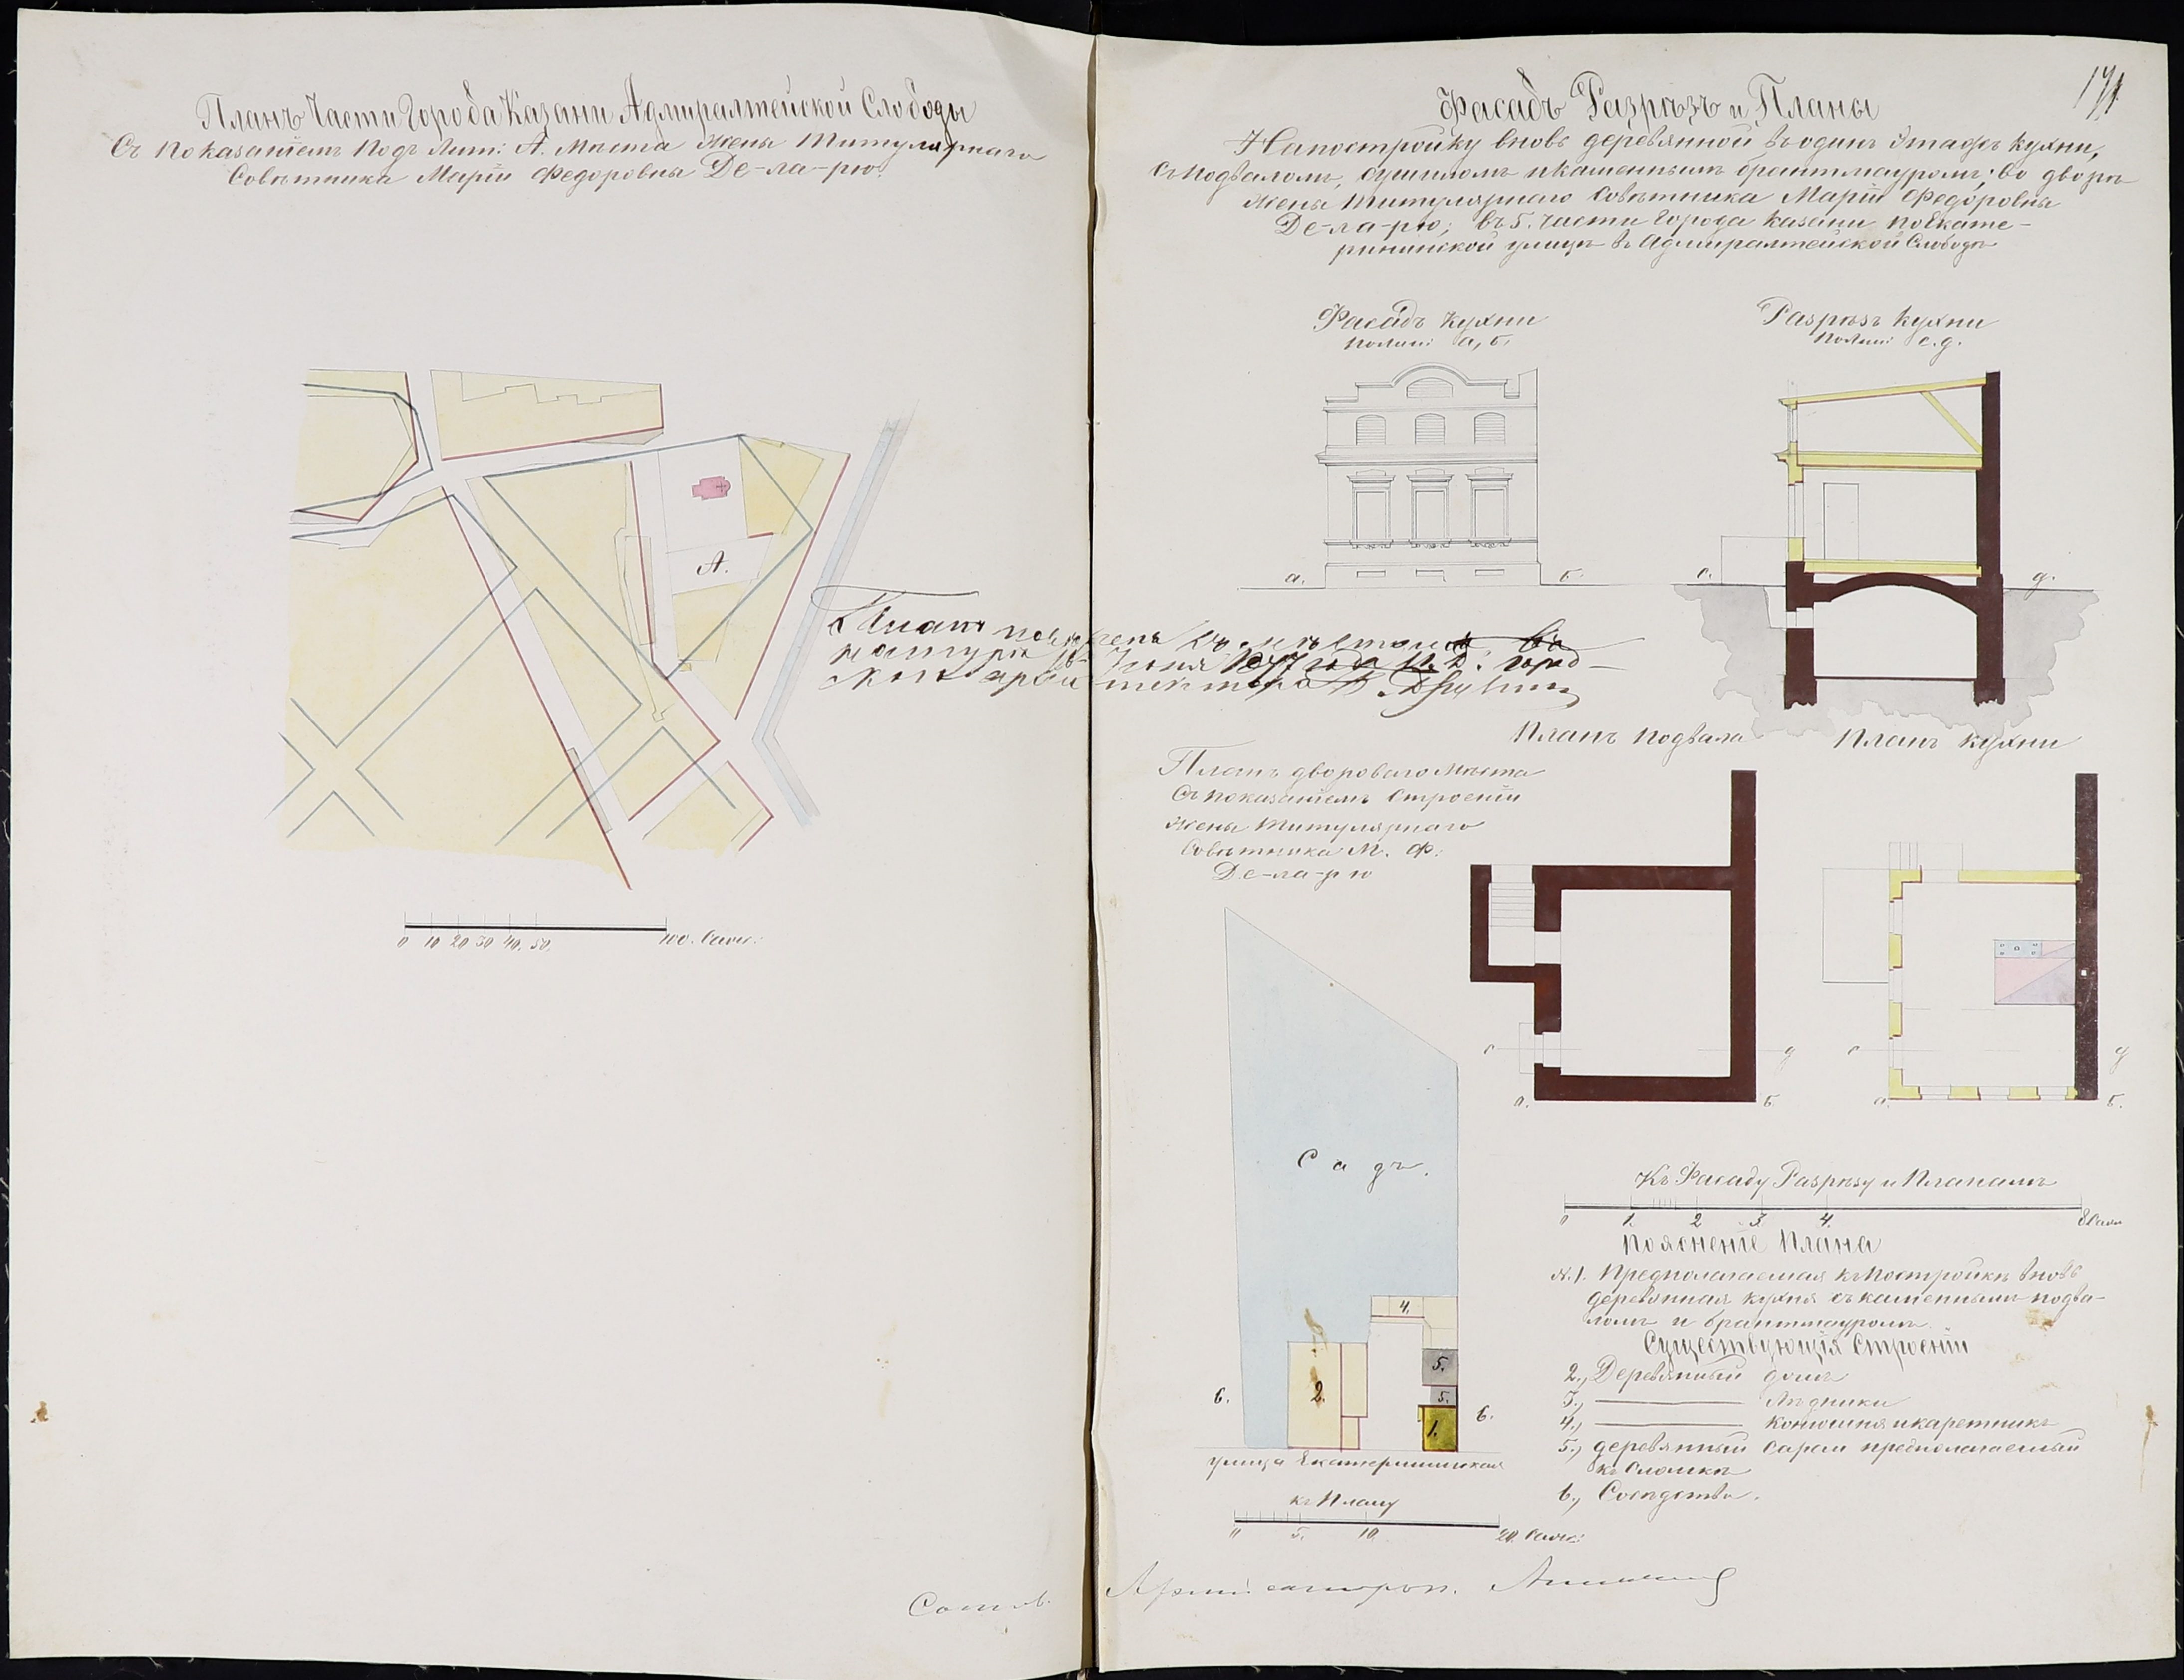 Планъ Части Города Казани Адмиралтейской Слободы
Съ показанiемъ подъ Лит: А. Мѣста Жены Титулярнаго
Совѣтника Марiи Федоровны Де-ла-рю.
А.
0 10 20 30 40. 50. 100. Саж:
171
Фасадъ Разрѣзъ и Планы
На постройку вновь деревянной въ одинъ Этажъ кухни,
съ подваломъ, сушиломъ и каменнымъ брантмауромъ; во дворѣ
Жены Титулярнаго Совѣтника Марiи Федоровны
Де-ла-рю; въ 5. части Города Казани по Екате-
рининской улицѣ въ Адмиралтейской Слободѣ
Фасадъ Кухни
по лин: а, б.
Разрѣзъ Кухни
по лин: с. д.
а. б.
с. д.
Планъ повѣренъ съ мѣстомъ въ
натурѣ Iюня года И. Д: город-
скаго архитектора
Планъ подвала
Планъ кухни
Планъ двороваго Мѣста
Съ показанiемъ Строенiй
Жены Титулярнаго
Совѣтника М. Ф:
Де-ла-рю
с д
а. б
с д
а. б.
Садъ.
4.
5.
5.
2.
1.
6.
6.
улица Екатерининская
къ Плану
0 5. 10. 20. Саж:
Къ Фасаду Разрѣзу и Планамъ
0 1. 2 3. 4. 8 Саж
Пояснение Плана
N. 1. Предполагаемая къ постройкѣ вновь
деревянная кухня съ каменнымъ подва-
ломъ и брантмауромъ.
Существующiя Строенiи
2., Деревянный домъ
3., ——— Лѣдники
4., ——— Конюшня и каретникъ
5., деревянный сараи предполагаемый
къ сломкѣ
6., Сосѣдства.